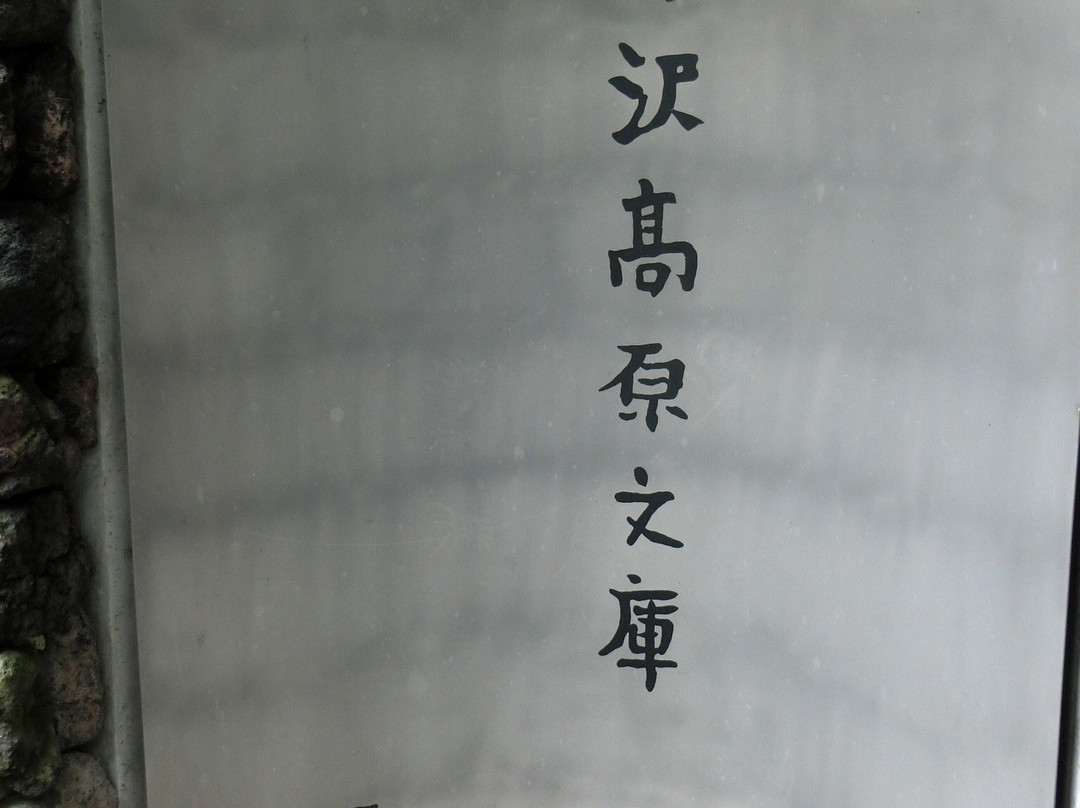 沢髙原文庫